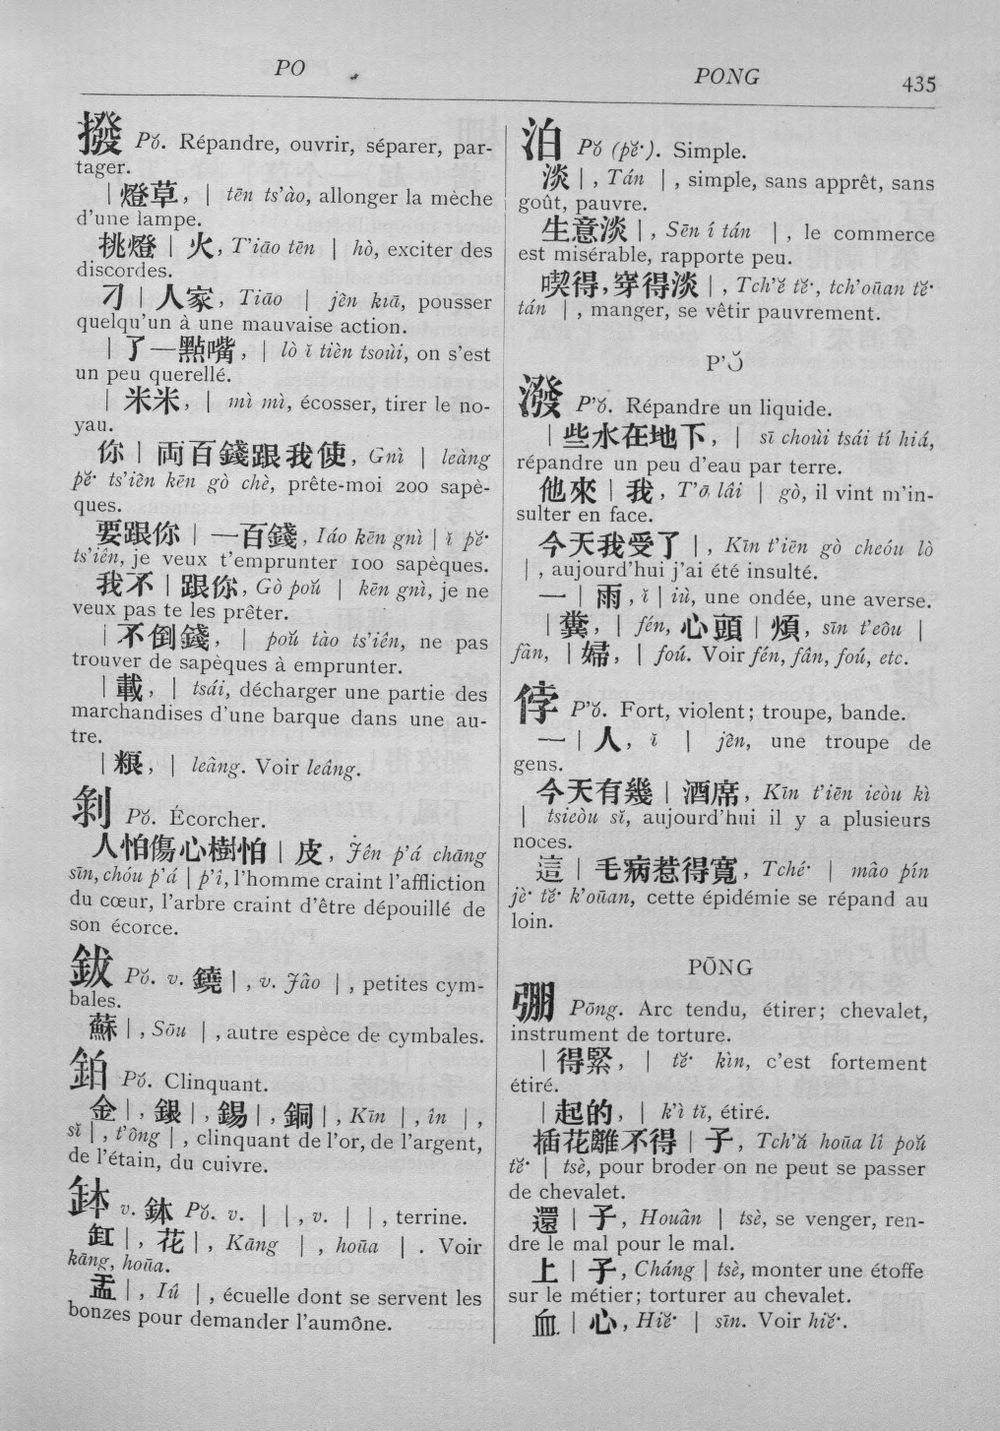 PO
PONG
435
撥 Pŏ. Répandre, ouvrir, séparer, par-
tager.
| 燈草, | tēn ts'ào, allonger la mèche
d'une lampe.
挑燈 | 火, T'iāo tēn | hò, exciter des
discordes.
刁 | 人家, Tiāo | jên kıā, pousser
quelqu'un à une mauvaise action.
| 了一點嘴, | lò ĭ tièn tsoùi, on s'est
un peu querellé.
| 米米, | mì mì, écosser, tirer le no-
yau.
你 | 両百錢跟我使, Gnì | leàng
pĕ· ts'iên kēn gò chè, prête-moi 200 sapè-
ques.
要跟你 | 一百錢, Iáo kēn gnì | ĭ pĕ·
ts'iên, je veux t'emprunter 100 sapèques.
我不 | 跟你, Gò poŭ | kēn gnì, je ne
veux pas te les prêter.
| 不倒錢, | poŭ tào ts'iên, ne pas
trouver de sapèques à emprunter.
| 載, | tsái, décharger une partie des
marchandises d'une barque dans une au-
tre.
| 粮, | leâng. Voir leâng.
剝 Pŏ. Écorcher.
人怕傷心樹怕 | 皮, Jên p'á chāng
sīn, chóu p'á | p'î, l'homme craint l'affliction
du cœur, l'arbre craint d'être dépouillé de
son écorce.
鈸 Pŏ. v. 鐃 | , v. Jâo | , petites cym-
bales.
蘇 | , Sōu | , autre espèce de cymbales.
鉑 Pŏ. Clinquant.
金 | , 銀 | , 錫 | , 銅 | , Kīn | , în | ,
sĭ | , t'ông | , clinquant de l'or, de l'argent,
de l'étain, du cuivre.
缽 v. 鉢 Pŏ. v. | | , v. | | , terrine.
缸 | , 花 | , Kāng | , hoūa | . Voir
kāng, hoūa.
盂 | , Iû | , écuelle dont se servent les
bonzes pour demander l'aumône.
泊 Pŏ (pĕ·). Simple.
淡 | , Tán | , simple, sans apprêt, sans
goût, pauvre.
生意淡 | , Sēn í tán | , le commerce
est misérable, rapporte peu.
喫得, 穿得淡 | , Tch'ĕ tĕ·, tch'oūan tĕ·
tán | , manger, se vêtir pauvrement.
P'Ŏ
潑 P'ŏ. Répandre un liquide.
| 些水在地下, | sī choùi tsái tí hiá,
répandre un peu d'eau par terre.
他來 | 我, T'ā lâi | gò, il vint m'in-
sulter en face.
今天我受了 | , Kīn t'iēn gò cheóu lò
| , aujourd'hui j'ai été insulté.
一 | 雨, ĭ | iù, une ondée, une averse.
| 糞, | fén, 心頭 | 煩, sīn t'eôu |
fân, | 婦, | foú. Voir fén, fân, foú, etc.
㧳 P'ŏ. Fort, violent; troupe, bande.
一 | 人, ĭ | jên, une troupe de
gens.
今天有幾 | 酒席, Kīn t'iēn ieòu kì
| tsieòu sĭ, aujourd'hui il y a plusieurs
noces.
這 | 毛病惹得寬, Tché· | mâo pín
jè· tĕ· k'oūan, cette épidémie se répand au
loin.
PŌNG
弸 Pōng. Arc tendu, étirer; chevalet,
instrument de torture.
| 得緊, | tĕ· kìn, c'est fortement
étiré.
| 起的, | k'ì tĭ, étiré.
插花離不得 | 子, Tch'ă hoūa lî poŭ
tĕ· | tsè, pour broder on ne peut se passer
de chevalet.
還 | 子, Houân | tsè, se venger, ren-
dre le mal pour le mal.
上 | 子, Cháng | tsè, monter une étoffe
sur le métier; torturer au chevalet.
血 | 心, Hiĕ· | sīn. Voir hiĕ·.